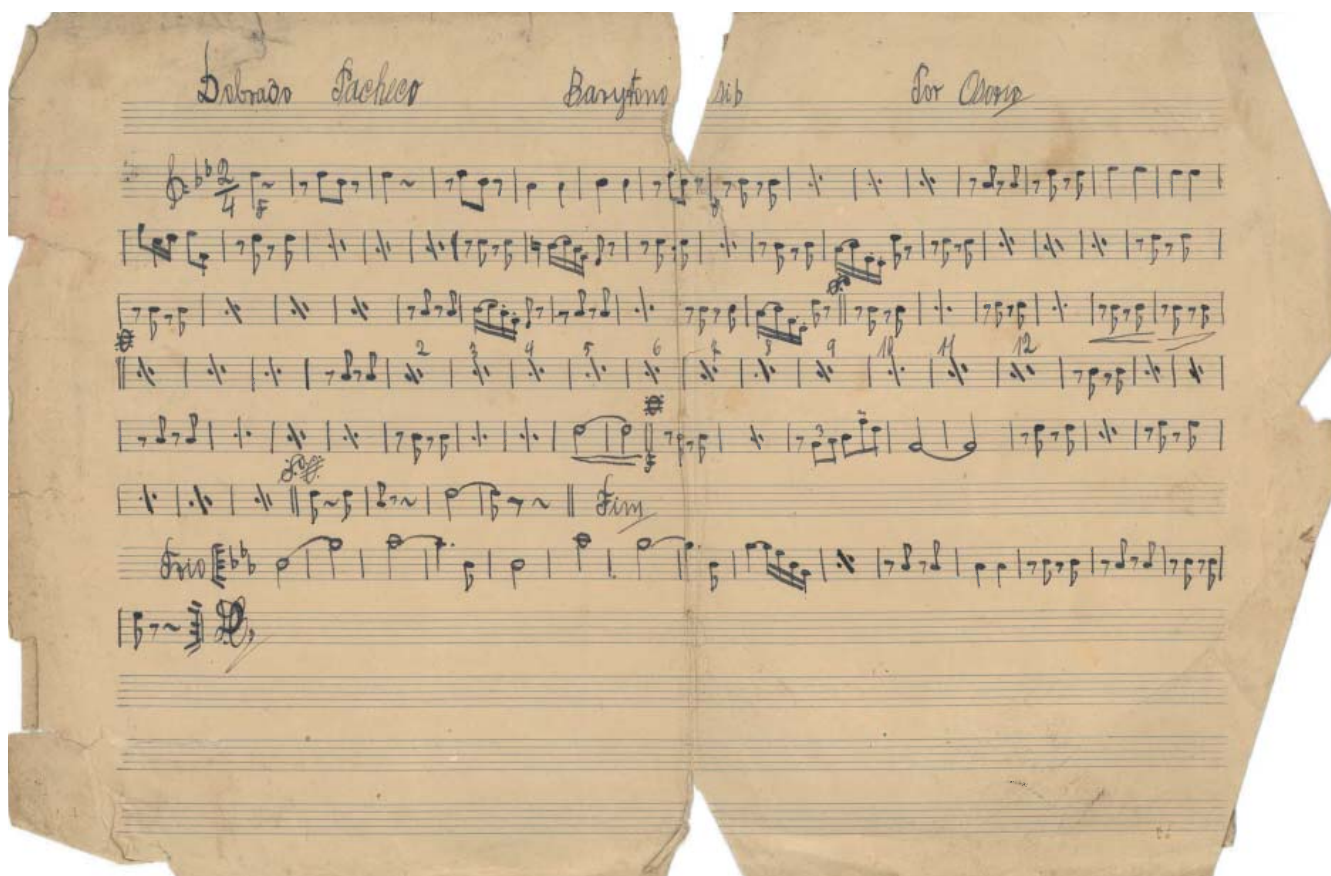 Dobrado Pacheco Barytono sib Por Osorio
2
4
2 3 4 5 6 7 8 9 10 11 12
3
Fim
Trio